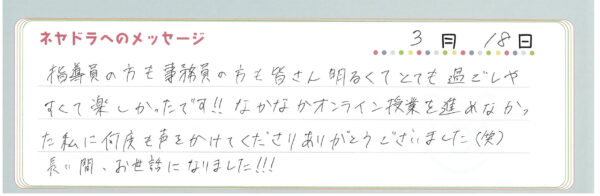 ネヤドラへのメッセージ
3月 18日
指導員の方も事務員の方も皆さん明るくてとても過ごしや
すくて楽しかったです!!なかなかオンライン授業を進めなかっ
た私に何度も声をかけてくださりありがとうございました(笑)
長い間、お世話になりました!!!